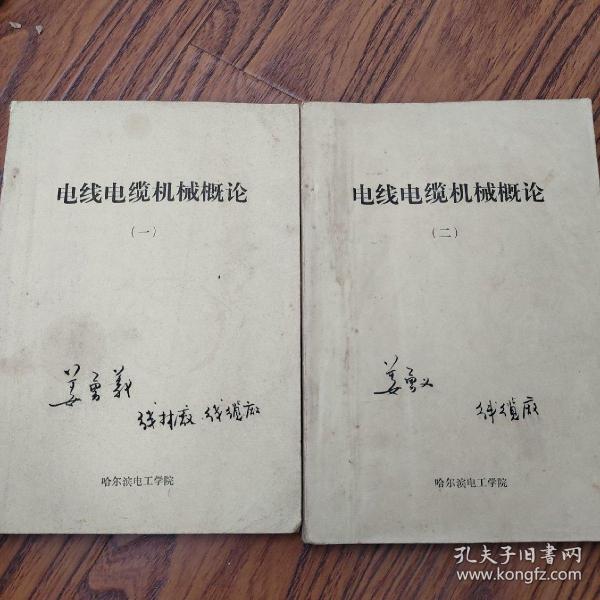 电线电缆机械概论
（一）
姜勇義
线材厰 线缆厰
哈尔滨电工学院
电线电缆机械概论
（二）
姜勇义
线缆厰
哈尔滨电工学院
孔夫子旧书网
www.kongfz.com